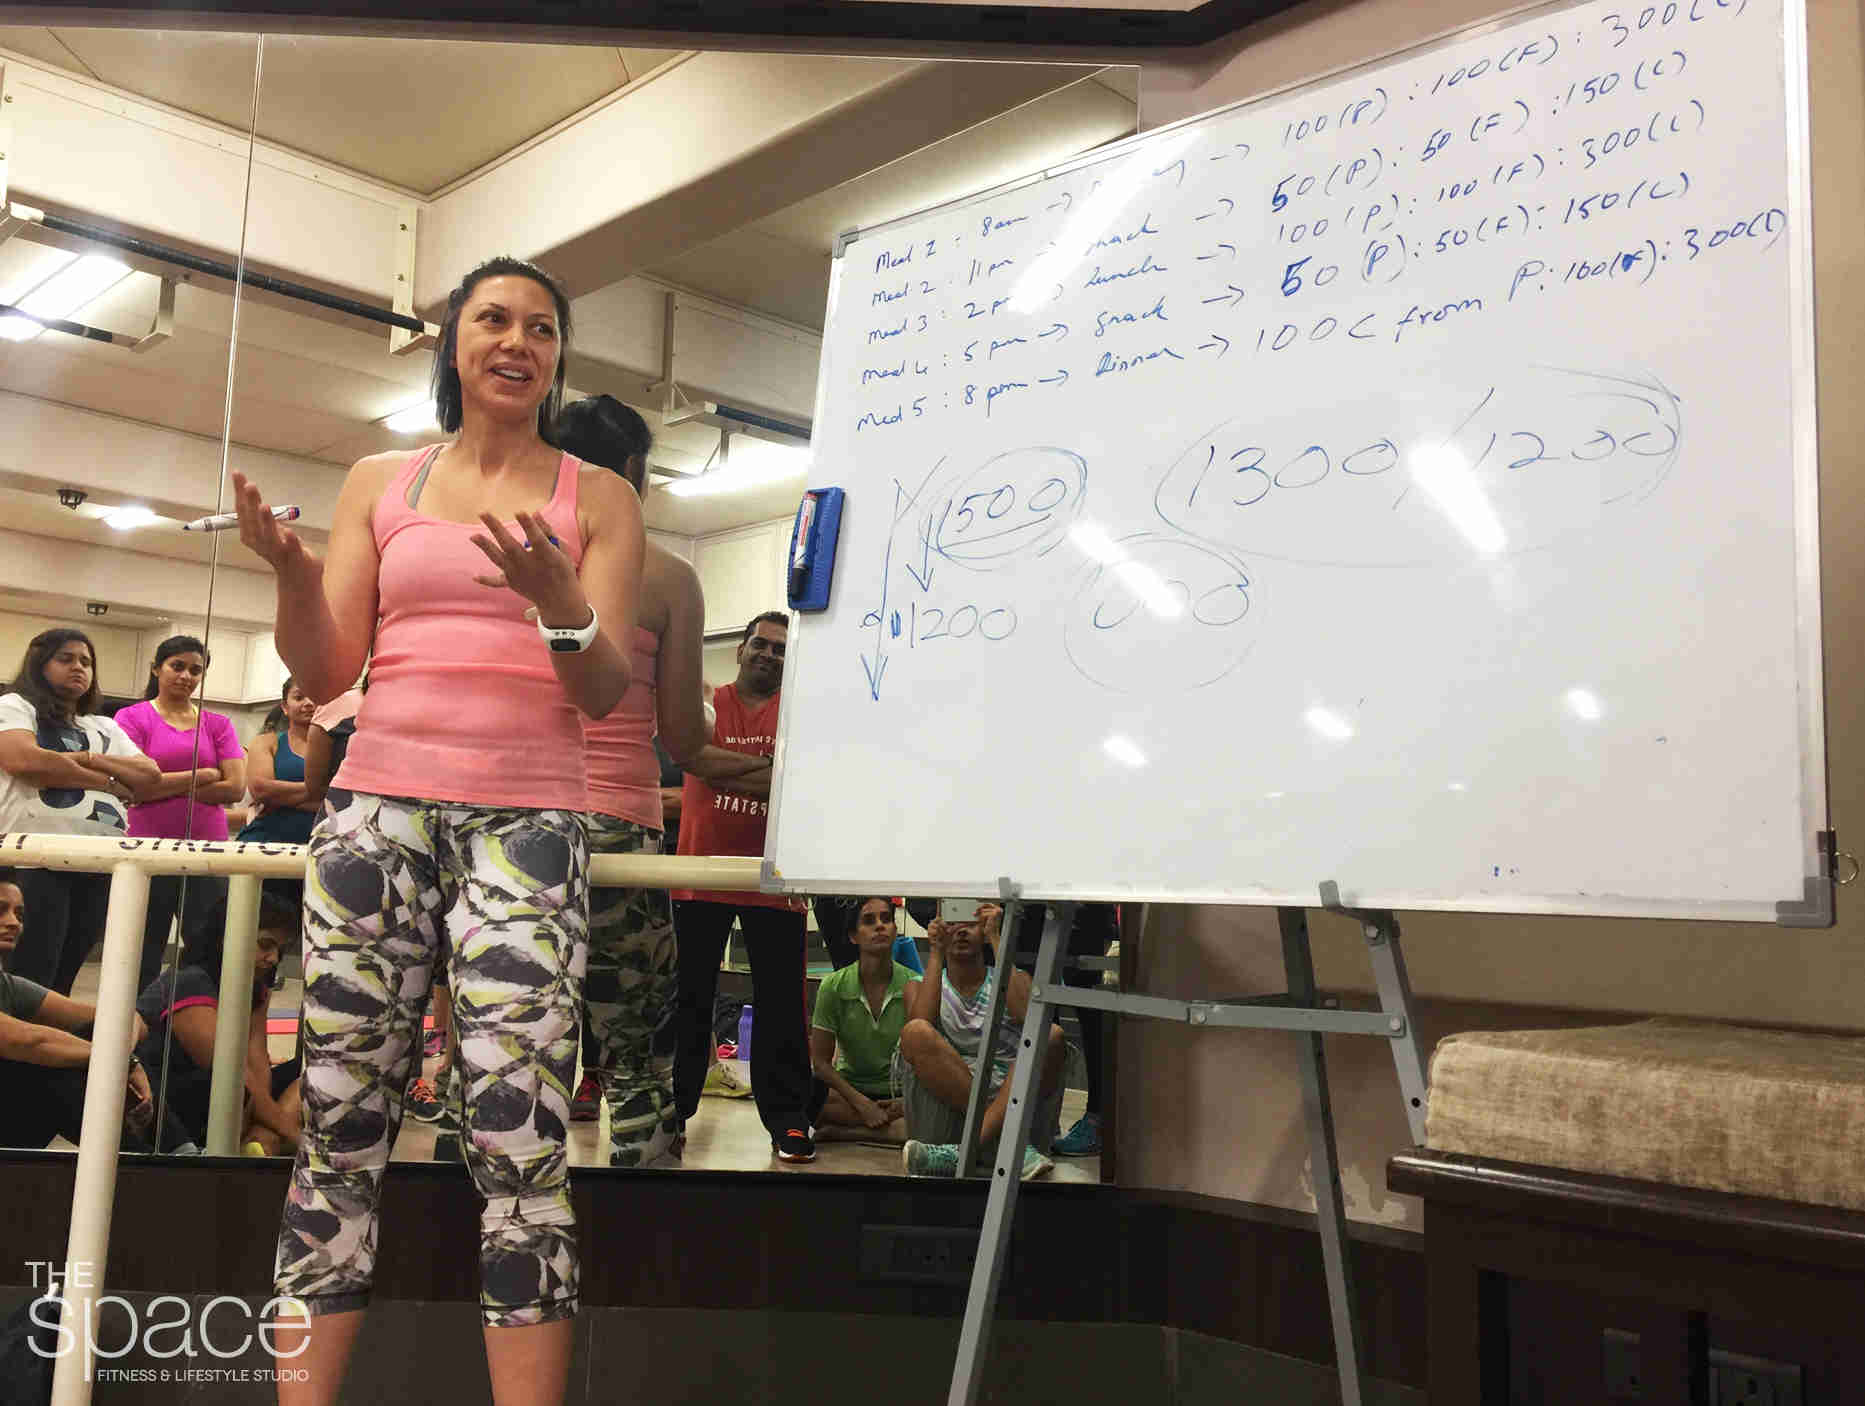 Meal 1 : 8am → → 100(P) : 100(F) : 300(C)
Meal 2 : 11 am → snack → 50(P) : 50(F) : 150(C)
Meal 3 : 2 pm → lunch → 100(P) : 100(F) : 300(C)
Meal 4 : 5 pm → snack → 50(P) : 50(F) : 150(C)
Meal 5 : 8 pm → Dinner → 100C from P : 100(F) : 300(C)
1500 1300 / 1200
1200
STRETCH
THE
space
FITNESS & LIFESTYLE STUDIO